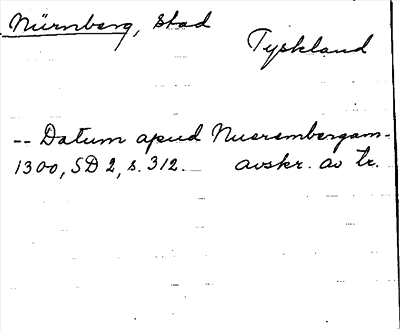 Nürnberg, Stad
Tyskland
-- Datum apud Nuerembergam-
1300, SD 2, s. 312. avskr. av tr.